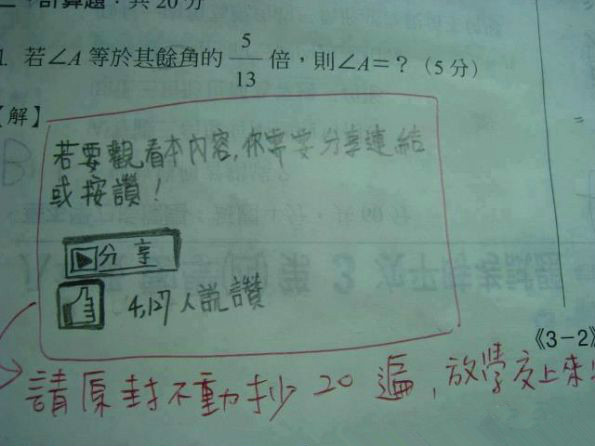 二、計算題：共20分
1. 若∠A 等於其餘角的 5/13 倍，則∠A＝？（5分）
【解】
若要觀看本內容,你需要分享連結
或按讚！
分享
4,127人說讚
《3－2》
請原封不動抄20遍,放學交上來